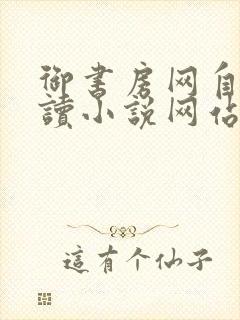 御書房网自
讀小説网佔
這有个仙子